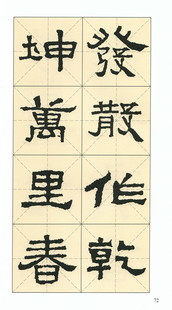 發散作乾
坤萬里春
72